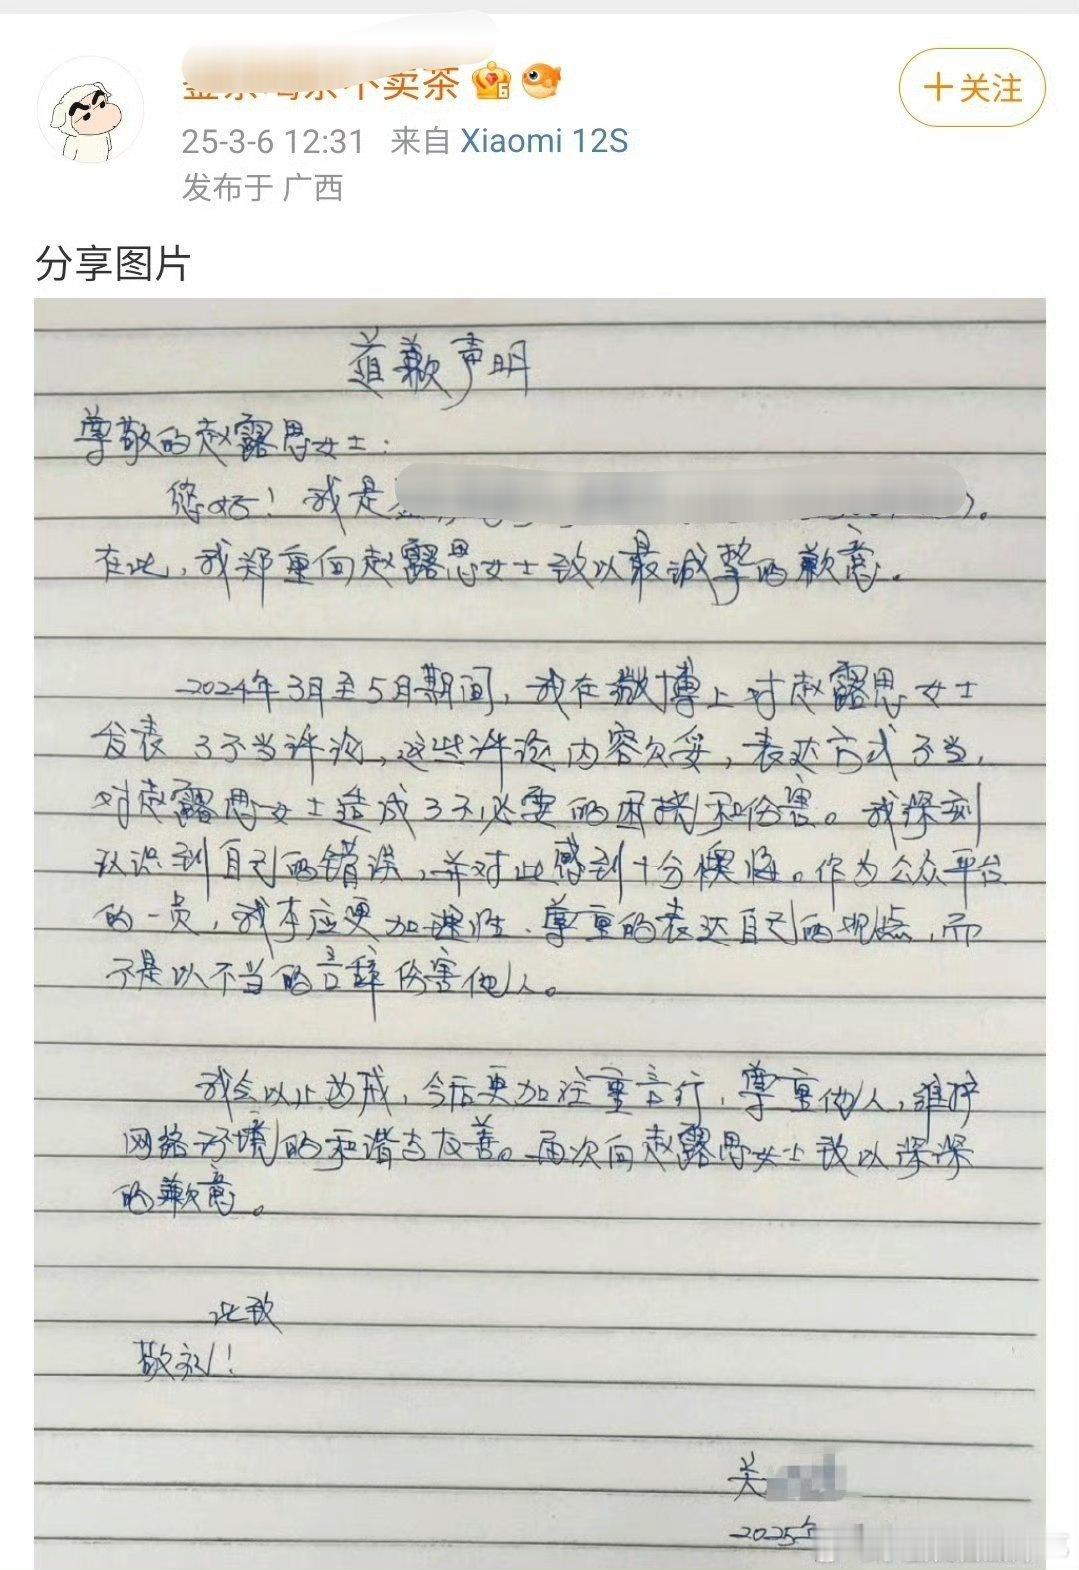 卖茶
25-3-6 12:31 来自 Xiaomi 12S
发布于 广西
+关注
分享图片
道歉声明
尊敬的赵露思女士：
您好！我是
在此，我郑重向赵露思女士致以最诚挚的歉意。
2024年3月至5月期间，我在微博上对赵露思女士
发表了不当评论，这些评论内容欠妥，表达方式不当，
对赵露思女士造成了不必要的困扰和伤害。我深刻
认识到自己的错误，并对此感到十分懊悔。作为公众平台
的一员，我本应更加理性、尊重的表达自己的观点，而
不是以不当的言辞伤害他人。
我会以此为戒，今后更加注重言行，尊重他人，维护
网络环境的和谐与友善。再次向赵露思女士致以深深
的歉意。
此致
敬礼！
关
2025年